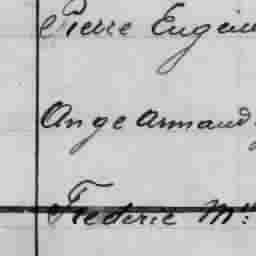 Pierre Eugène
Ange Armand
Frederic Mie